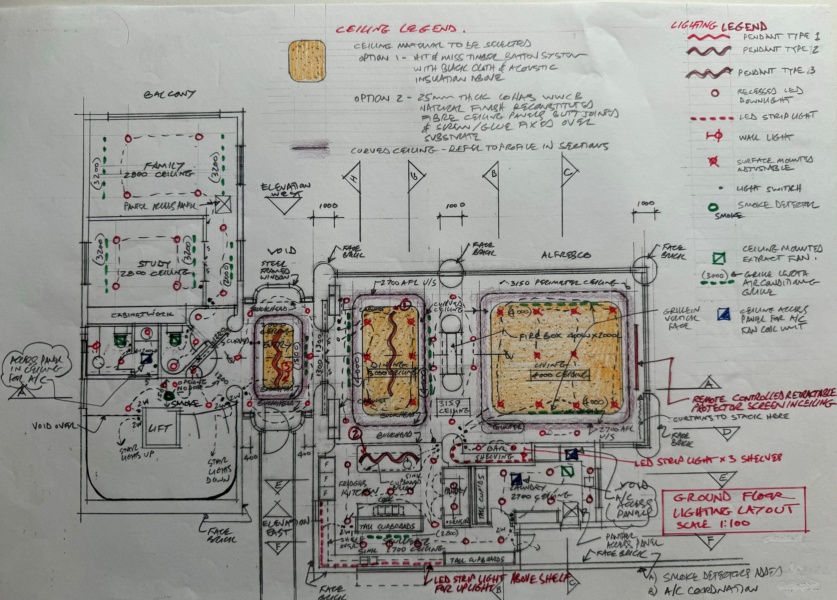 CEILING LEGEND.
CEILING MATERIAL TO BE SELECTED
OPTION 1 - HIT & MISS TIMBER BATTON SYSTEM
WITH BLACK CLOTH & ACOUSTIC
INSULATION ABOVE
OPTION 2 - 25mm THICK WWCB
NATURAL FINISH RECONSTITUTED
FIBRE CEILING PANELS BUTT JOINED
& SCREW/GLUE FIXED OVER
SUBSTRATE
CURVED CEILING - REFER TO PROFILE IN SECTIONS
LIGHTING LEGEND
PENDANT TYPE 1
PENDANT TYPE 2
PENDANT TYPE 3
RECESSED LED
DOWNLIGHT
LED STRIP LIGHT
WALL LIGHT
SURFACE MOUNTED
ADJUSTABLE
LIGHT SWITCH
SMOKE DETECTOR
SMOKE
CEILING MOUNTED
EXTRACT FAN
(3000) GRILLE LENGTH
AIR CONDITIONING
GRILLE
CEILING ACCESS
PANEL FOR A/C
FAN COIL UNIT
BALCONY
FAMILY
2800 CEILING
(3200)
(3200)
PANEL
STUDY
2800 CEILING
(3200)
(3200)
CABINETWORK
ELEVATION
WEST
VOID
STEEL
FRAMED
WINDOW
1000
1000
1000
H
B
B
C
FACE
BRICK
FACE
BRICK
ALFRESCO
FACE
BRICK
2700 AFL U/S
3150 PERIMETER CEILING
CURVED
CEILING
GRILLE IN
VERTICAL
FACE
ENTRY
DINING
LIVING
4000 CEILING
3150
CEILING
2700 AFL
U/S
BULKHEAD
ACCESS PANEL
IN CEILING
FOR A/C
A
SMOKE
VOID OVER
LIFT
STAIR
LIGHTS UP
STAIR
LIGHTS
DOWN
400
400
A
REMOTE CONTROLLED RETRACTABLE
PROTECTOR SCREEN IN CEILING
CURTAINS TO STACK HERE
FACE
BRICK
D
BAR
SHELVING
LED STRIP LIGHT X 3 SHELVES
E
KITCHEN
LAUNDRY
2700 CEILING
TALL CUPBOARDS
VOID
A/C
ACCESS
PANELS
GROUND FLOOR
LIGHTING LAYOUT
SCALE 1:100
E
ELEVATION
EAST
F
F
FACE
BRICK
SINK
2700 CEILING
TALL CUPBOARDS
ACCESS PANEL
FACE BRICK
FACE
BRICK
LED STRIP LIGHT ABOVE SHELF
FOR UPLIGHT
B
C
A) SMOKE DETECTORS ADDED
B) A/C COORDINATION